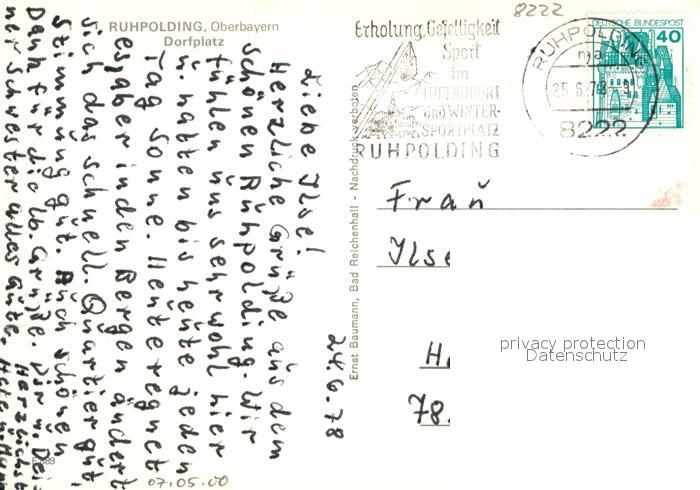 8222
RUHPOLDING, Oberbayern
Dorfplatz
Erholung, Geselligkeit
Sport
im
LUFTKURORT
und WINTER-
SPORTPLATZ
RUHPOLDING
RUHPOLDING
8222
DEUTSCHE BUNDESPOST
40
24.6.78
Liebe Ilse!
Herzliche Grüße aus dem
schönen Ruhpolding. Wir
fühlen uns sehr wohl hier
u. hatten bis heute jeden
Tag Sonne. Heute regnet
es, aber in den Bergen ändert
sich das schnell. Quartier gut,
Stimmung gut. Auch schönen
Dank für die lb. Grüße. Dir u. Dei-
ner Schwester alles Gute.
Herzlichst
Ernst Baumann, Bad Reichenhall - Nachdruck verboten
Frau
Ilse
H
78.
privacy protection
Datenschutz
07.05.00